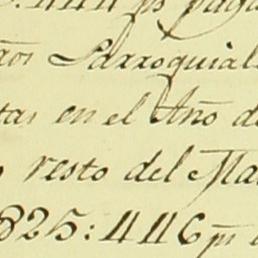 ps paga
ros Parroquial
tas en el Año d
resto del Ma
825: 446 ps